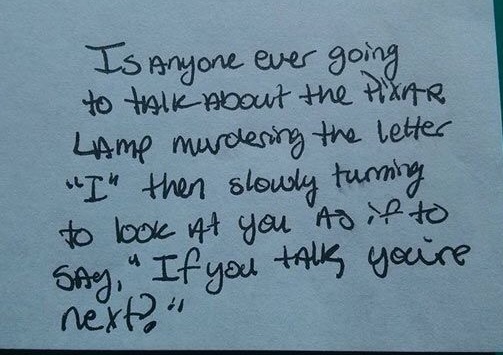 Is anyone ever going
to talk about the Pixar
Lamp murdering the letter
"I" then slowly turning
to look at you as if to
say, "If you talk, you're
next?"